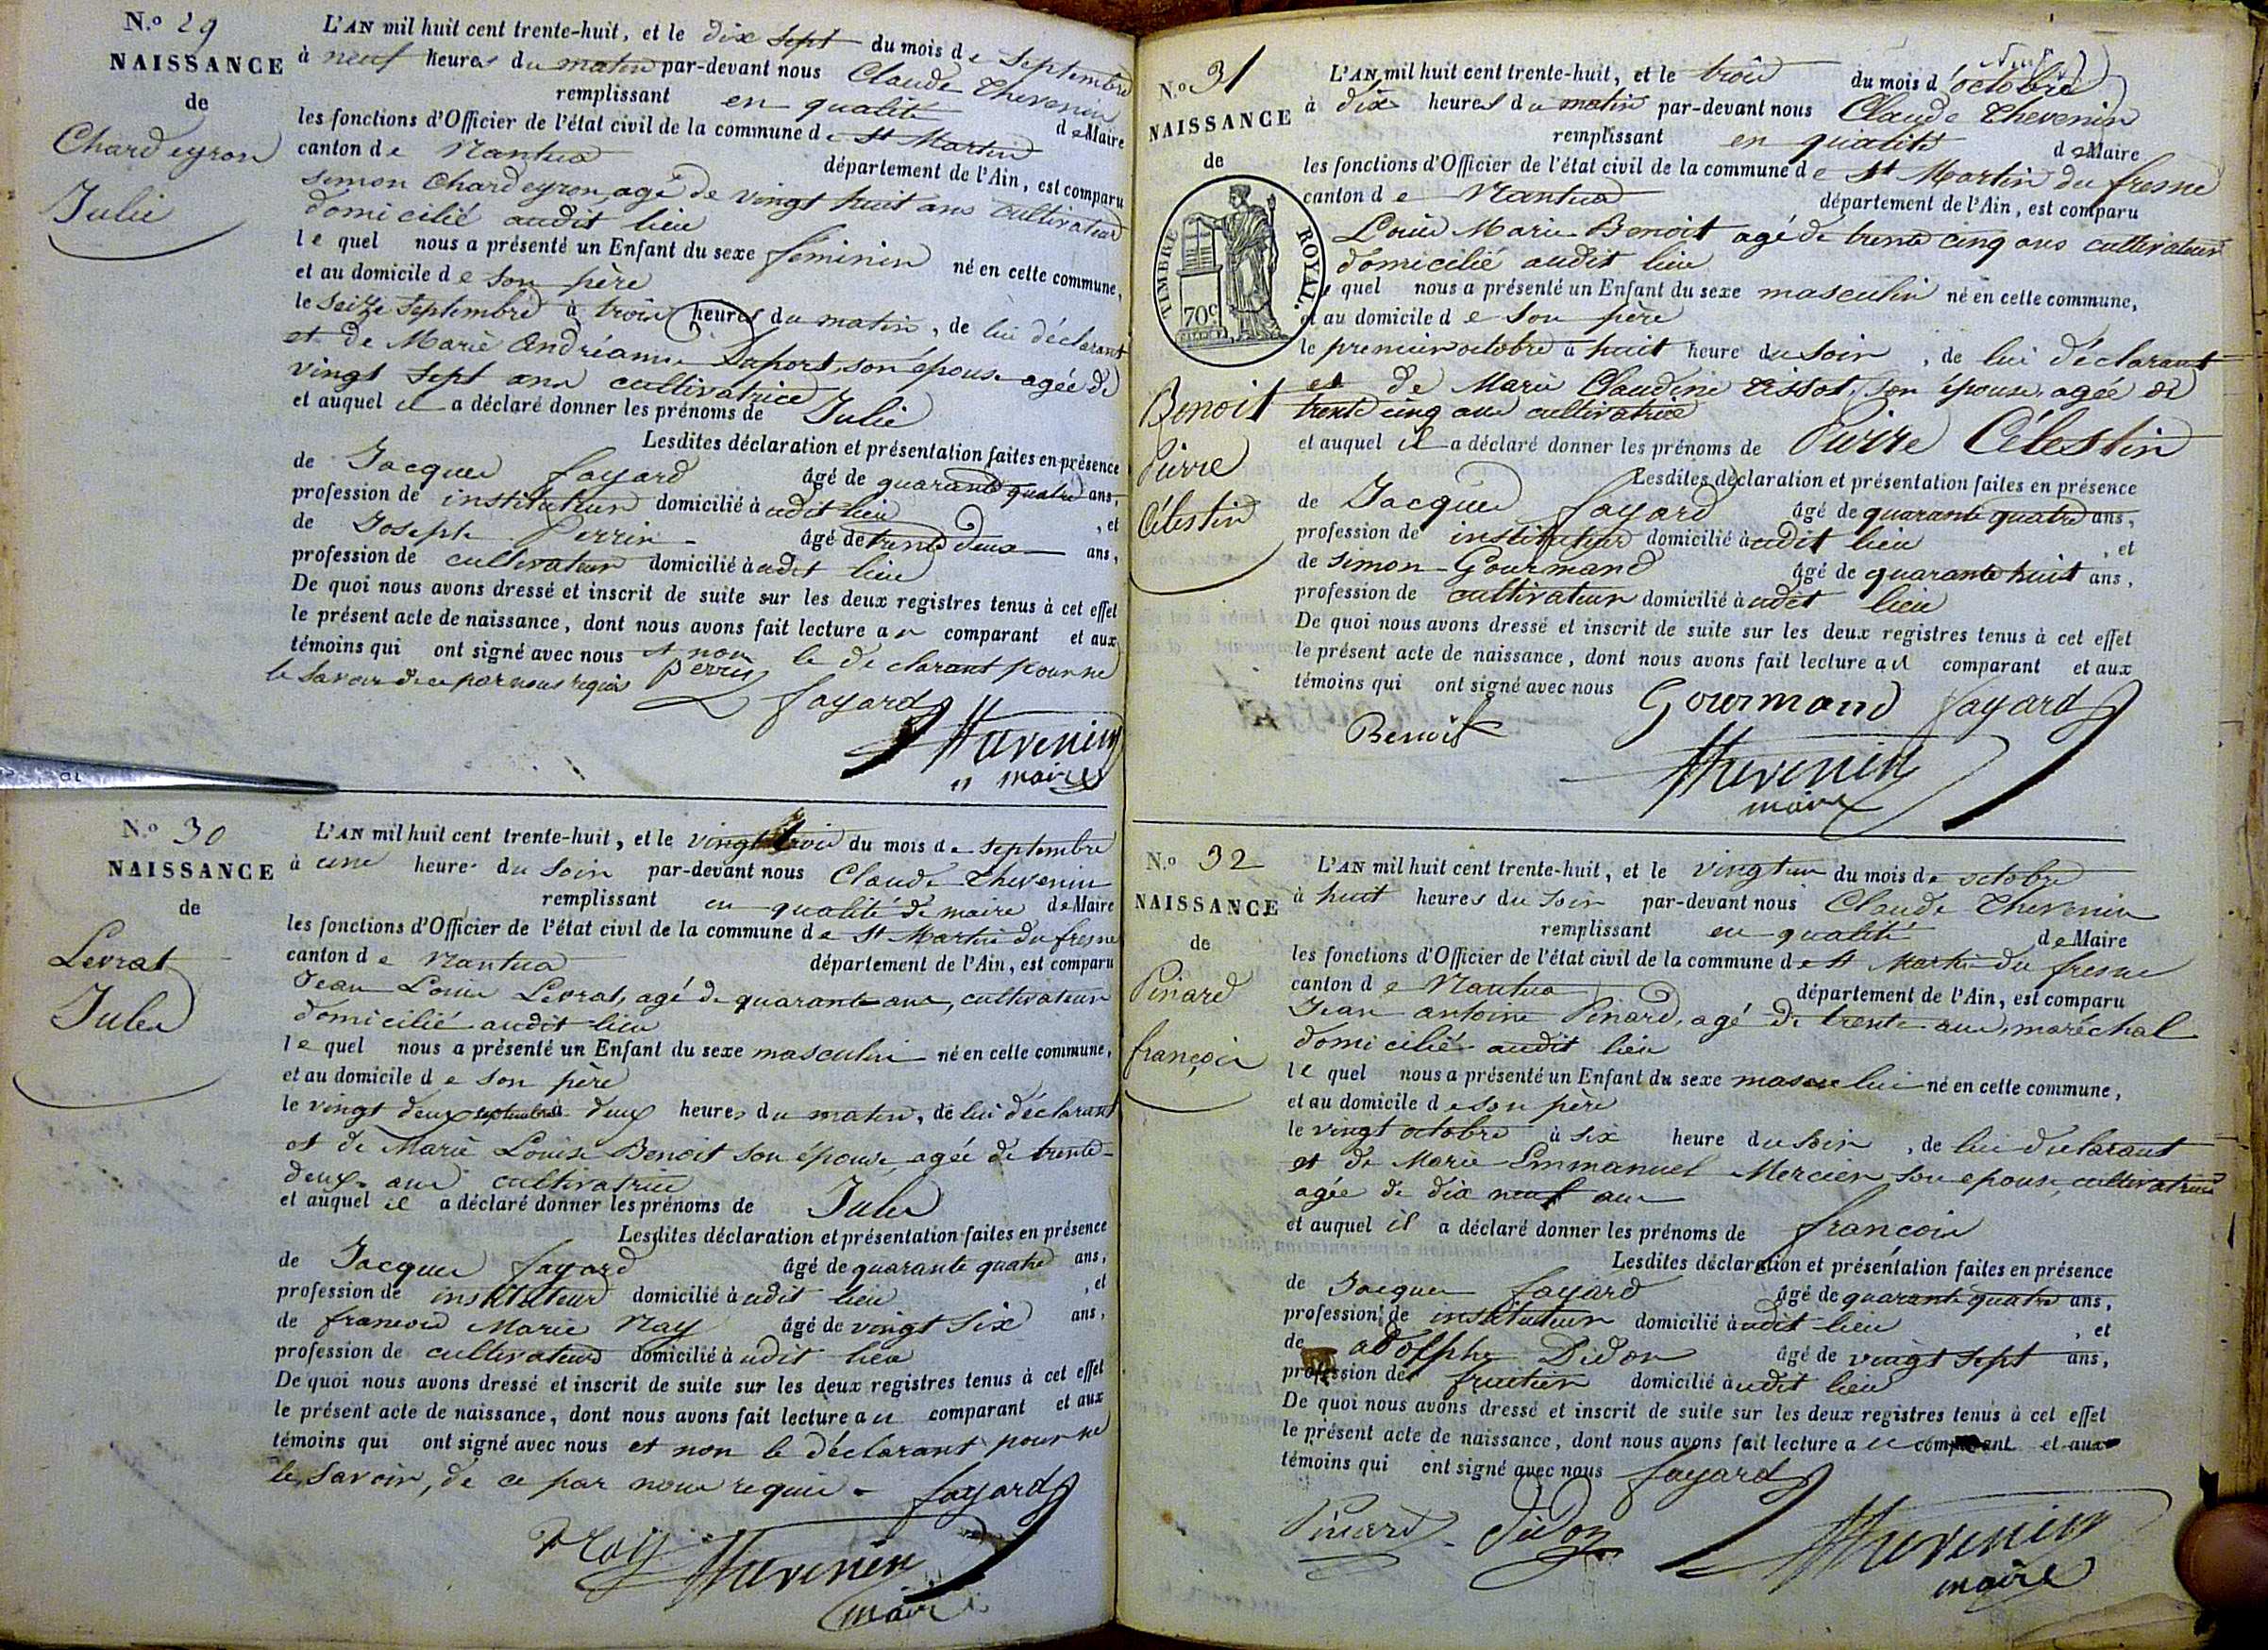 N.º 29
NAISSANCE
de
Chardeyron
Julie
L'AN mil huit cent trente-huit, et le dix sept du mois de Septembre
à neuf heures du matin par-devant nous Claude Thevenin
remplissant en qualité de Maire
les fonctions d'Officier de l'état civil de la commune de St Martin
canton de Nantua département de l'Ain, est comparu
simon Chardeyron, agé de vingt huit ans cultivateur
domicilié audit lieu
le quel nous a présenté un Enfant du sexe féminin né en cette commune,
et au domicile de son père
le seize septembre à trois heures du matin, de lui déclarant
et de Marie Andréanne Duport, son épouse agée de
vingt sept ans cultivatrice
et auquel il a déclaré donner les prénoms de Julie
Lesdites déclaration et présentation faites en présence
de Jacques fayard âgé de quarante quatre ans,
profession de instituteur domicilié à udit lieu, et
de Joseph Perrin âgé de trente deux ans,
profession de cultivateur domicilié à udit lieu
De quoi nous avons dressé et inscrit de suite sur les deux registres tenus à cet effet
le présent acte de naissance, dont nous avons fait lecture au comparant et aux
témoins qui ont signé avec nous et non le déclarant pour ne
le savoir de ce par nous requis Perrin
fayard
Thevenin
maire
N.º 30
NAISSANCE
de
Levrat
Jules
L'AN mil huit cent trente-huit, et le vingt trois du mois de septembre
à une heure du soir par-devant nous Claude Thevenin
remplissant en qualité de maire de Maire
les fonctions d'Officier de l'état civil de la commune de St Martin du fresne
canton de Nantua département de l'Ain, est comparu
Jean Louis Levrat, agé de quarante ans, cultivateur
domicilié audit lieu
le quel nous a présenté un Enfant du sexe masculin né en cette commune,
et au domicile de son père
le vingt deux septembre à deux heures du matin, de lui déclarant
et de Marie Louise Benoit son épouse, agée de trente-
deux ans cultivatrice
et auquel il a déclaré donner les prénoms de Jules
Lesdites déclaration et présentation faites en présence
de Jacques fayard âgé de quarante quatre ans,
profession de instituteur domicilié à udit lieu, et
de francois Marie Nay âgé de vingt six ans,
profession de cultivateur domicilié à udit lieu
De quoi nous avons dressé et inscrit de suite sur les deux registres tenus à cet effet
le présent acte de naissance, dont nous avons fait lecture au comparant et aux
témoins qui ont signé avec nous et non le déclarant pour ne
le savoir, de ce par nous requis - fayard
Nay Thevenin
maire
N.º 31
NAISSANCE
de
TIMBRE ROYAL.
70c
Benoit
Pierre
Célestin
L'AN mil huit cent trente-huit, et le trois du mois d'octobre
à dix heures du matin par-devant nous Claude Thevenin
remplissant en qualité de Maire
les fonctions d'Officier de l'état civil de la commune de St Martin du fresne
canton de Nantua département de l'Ain, est comparu
Louis Marie Benoit agé de trente cinq ans cultivateur
domicilié audit lieu
le quel nous a présenté un Enfant du sexe masculin né en cette commune,
et au domicile de son père
le premier octobre à huit heure du soir, de lui déclarant
et de Marie Claudine Tissot, son épouse, agée de
trente cinq ans cultivatrice
et auquel il a déclaré donner les prénoms de Pierre Célestin
Lesdites déclaration et présentation faites en présence
de Jacques fayard âgé de quarante quatre ans,
profession de instituteur domicilié à udit lieu, et
de simon Gourmand âgé de quarante huit ans,
profession de cultivateur domicilié à udit lieu
De quoi nous avons dressé et inscrit de suite sur les deux registres tenus à cet effet
le présent acte de naissance, dont nous avons fait lecture au comparant et aux
témoins qui ont signé avec nous Gourmand fayard
Benoit
Thevenin
maire
N.º 32
NAISSANCE
de
Pinard
françois
L'AN mil huit cent trente-huit, et le vingt un du mois de octobre
à huit heures du soir par-devant nous Claude Thevenin
remplissant en qualité de Maire
les fonctions d'Officier de l'état civil de la commune de St Martin du fresne
canton de Nantua département de l'Ain, est comparu
Jean antoine Pinard, agé de trente ans, maréchal
domicilié audit lieu
le quel nous a présenté un Enfant du sexe masculin né en cette commune,
et au domicile de son père
le vingt octobre à six heure du soir, de lui déclarant
et de Marie Emmanuel Mercier, son epouse, cultivatrice
agée de dix neuf ans
et auquel il a déclaré donner les prénoms de francois
Lesdites déclaration et présentation faites en présence
de Jacques fayard âgé de quarante quatre ans,
profession de instituteur domicilié à udit lieu, et
de adolphe Didon âgé de vingt sept ans,
profession de fruitier domicilié à udit lieu
De quoi nous avons dressé et inscrit de suite sur les deux registres tenus à cet effet
le présent acte de naissance, dont nous avons fait lecture au comparant et aux
témoins qui ont signé avec nous fayard
Pinard Didon Thevenin
maire